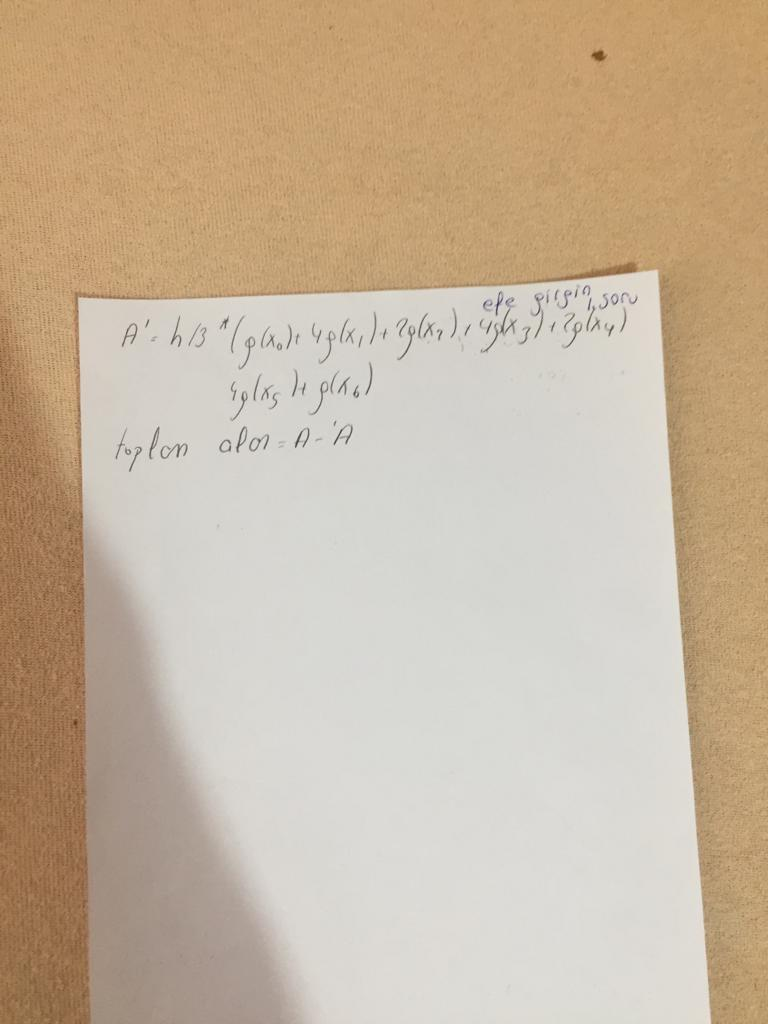 efe girgin 1. soru
A' = h/3 * (g(x₀) + 4g(x₁) + 2g(x₂) + 4g(x₃) + 2g(x₄)
4g(x₅) + g(x₆)
toplam alan = A - 'A